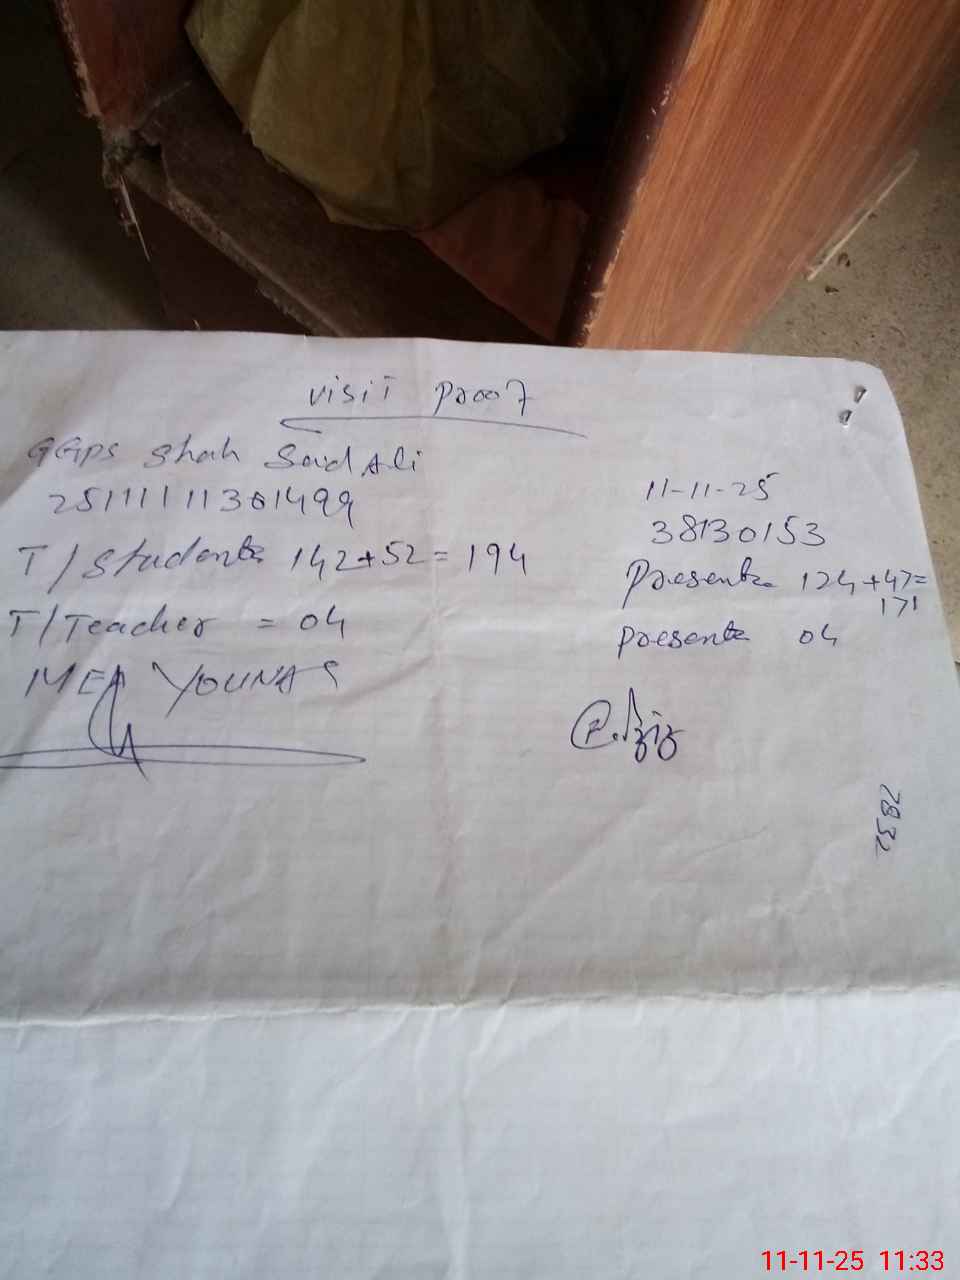 visit proof
GGPS Shah Said Ali
2511111301499
11-11-25
38130153
T/Students 142+52=194
Presents 124+47=
171
T/Teacher = 04
Presents 04
MEA YOUNAS
7832
11-11-25 11:33